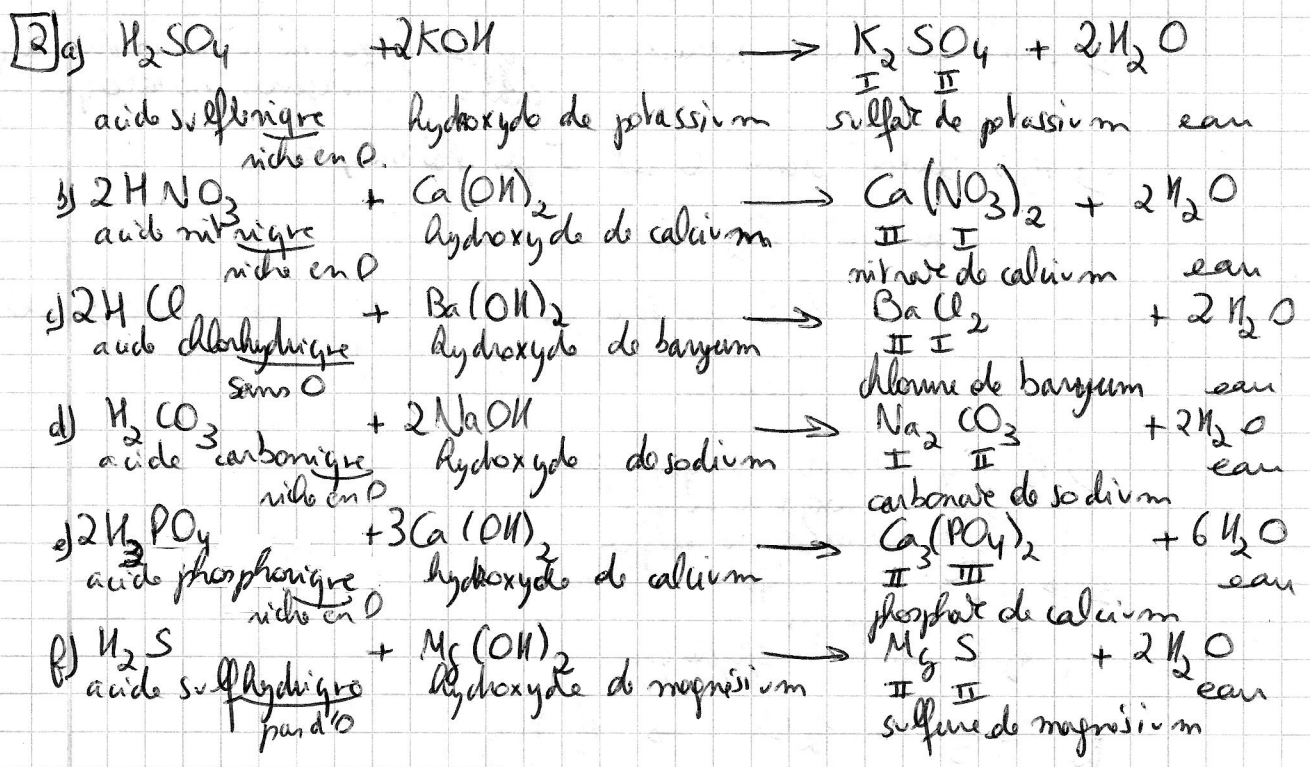 2 a) H₂SO₄ + 2KOH ⟶ K₂SO₄ + 2H₂O
I II
acide sulfurique hydroxyde de potassium sulfate de potassium eau
riche en O.
b) 2HNO₃ + Ca(OH)₂ ⟶ Ca(NO₃)₂ + 2H₂O
acide nitrique hydroxyde de calcium II I
riche en O nitrate de calcium eau
c) 2HCl + Ba(OH)₂ ⟶ BaCl₂ + 2H₂O
acide chlorhydrique hydroxyde de baryum II I
sans O chlorure de baryum eau
d) H₂CO₃ + 2NaOH ⟶ Na₂CO₃ + 2H₂O
acide carbonique hydroxyde de sodium I II eau
riche en O carbonate de sodium
e) 2H₃PO₄ + 3Ca(OH)₂ ⟶ Ca₃(PO₄)₂ + 6H₂O
acide phosphorique hydroxyde de calcium II III eau
riche en O phosphate de calcium
f) H₂S + Mg(OH)₂ ⟶ MgS + 2H₂O
acide sulfhydrique hydroxyde de magnésium II II eau
pas d'O sulfure de magnésium